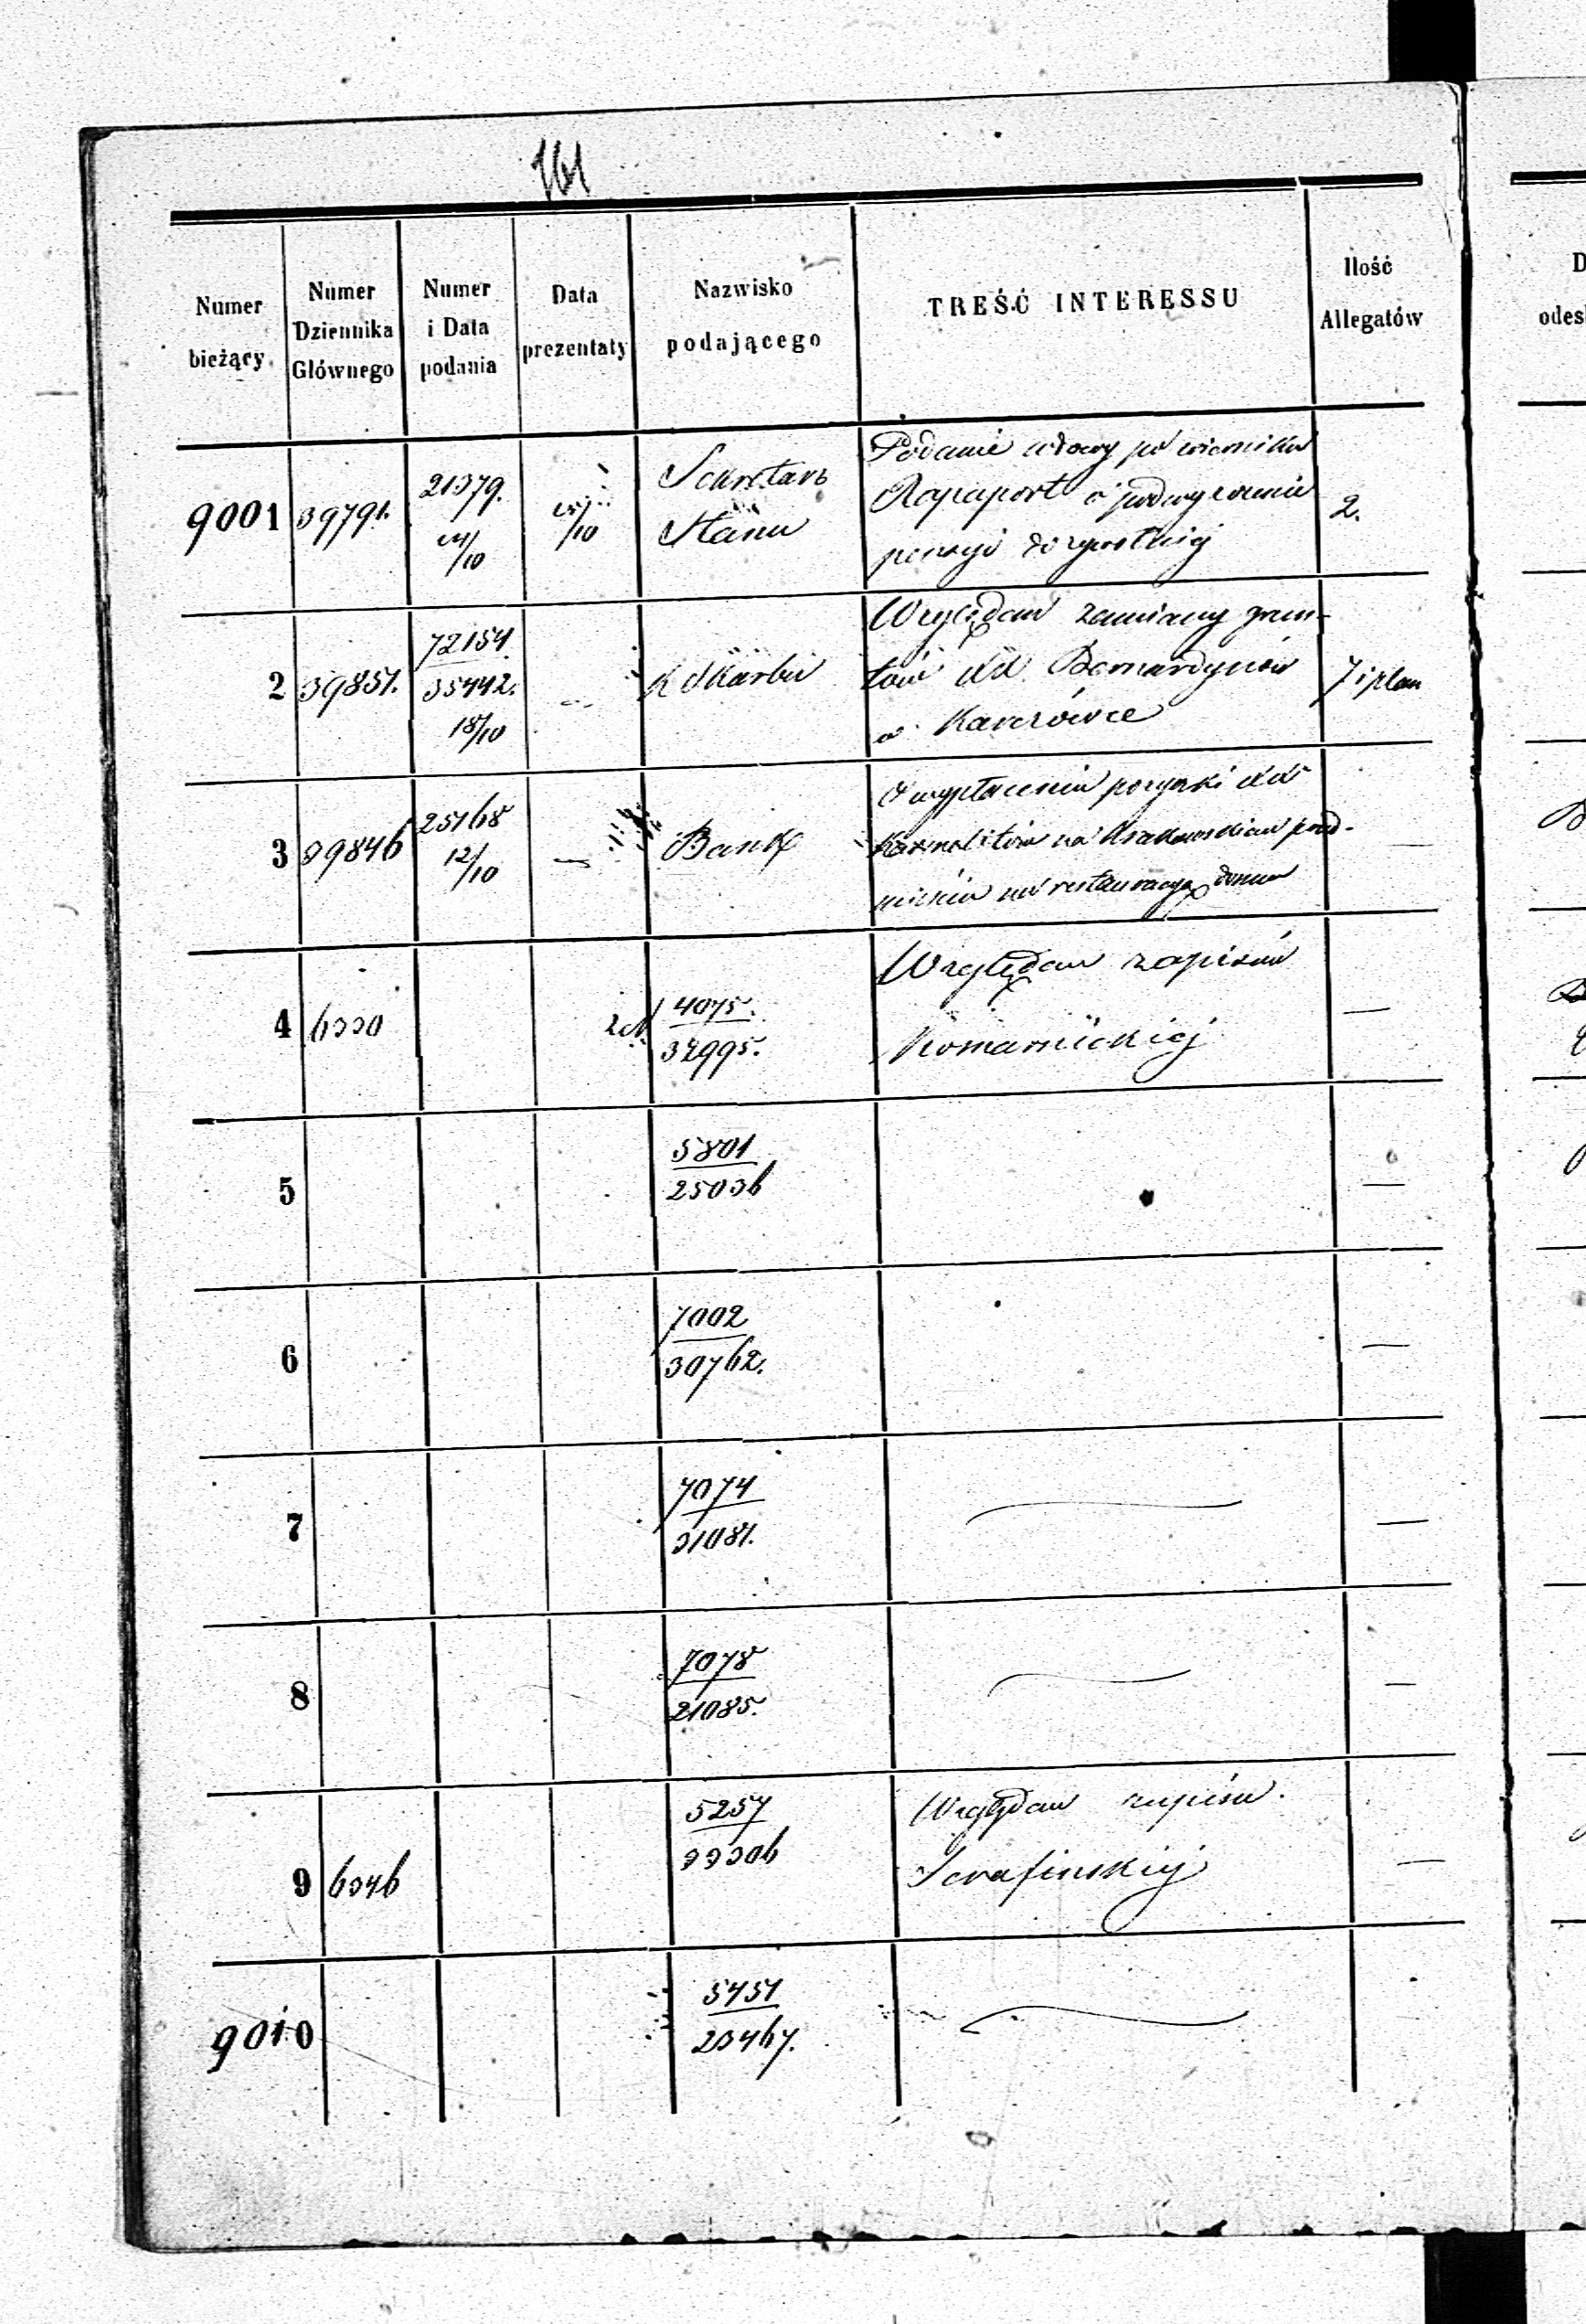 161
Numer bieżący
Numer Dziennika Głównego
Numer i Data podania
Data prezentaty
Nazwisko podającego
TREŚĆ INTERESSU
Ilość Allegatów
9001 39791. 21379. /10 /10 Sekretarz Stanu
Podanie wdowy po
Rapaport o podwyższenie
pensyi dożywotniej
2.
2 39851. 72154 35442. 18/10 K Skarbu
Względem zamiany grun-
tów XX. Bernardynów
w Karczówce
7 i plan
3 39846 25168 12/10 Bank
O wypłacenie pożyczki XX
Karmelitów na Krakowskiem przed-
mieściu na restauracyą domu
—
4 6330 4075. 32995.
Względem zapisów
Komarnickiej
—
5 5801 25036 —
6 7002 30762. —
7 7074 31081. —
8 7078 21085. —
9 6346 5257 33306
Względem zapisu
Serafinskiej
—
9010 5451 23467.
D
odes